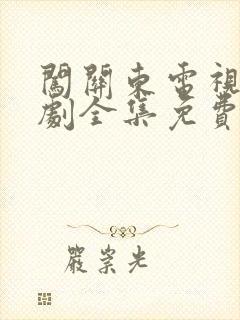 闖關東電視
劇全集免費
嚴崇光